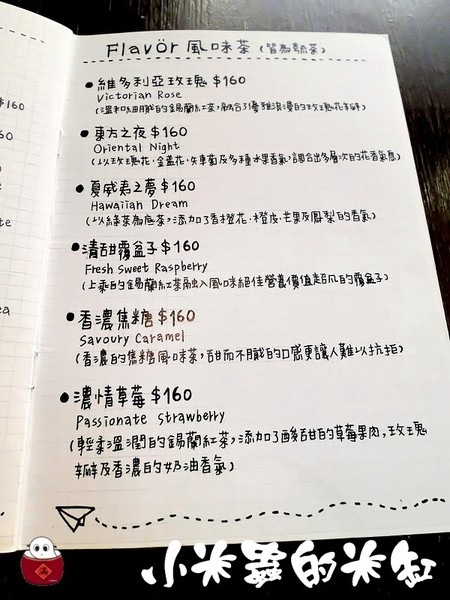 Flavör 風味茶 (皆為熱茶)
維多利亞玫瑰 $160
Victorian Rose
(溫和細膩的錫蘭紅茶，融合了優雅浪漫的玫瑰花香)
東方之夜 $160
Oriental Night
(以玫瑰花、金盞花、矢車菊及多種水果香氣，調合出多層次的花香氣息)
夏威夷之夢 $160
Hawaiian Dream
(以綠茶為底茶，添加了香橙花、橙皮、芒果及鳳梨的香氣)
清甜覆盆子 $160
Fresh Sweet Raspberry
(上乘的錫蘭紅茶融入風味絕佳營養價值超凡的覆盆子)
香濃焦糖 $160
Savoury Caramel
(香濃的焦糖風味茶，甜而不膩的口感更讓人難以抗拒)
濃情草莓 $160
Passionate Strawberry
(輕柔溫潤的錫蘭紅茶，添加了酸甜的草莓果肉，玫瑰
花瓣及香濃的奶油香氣)
$160
小米蟲的米缸